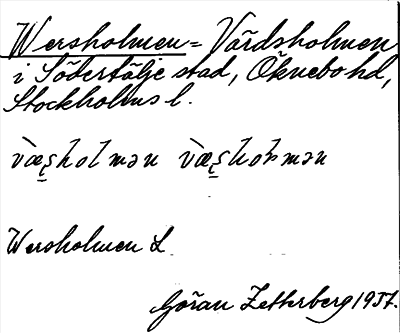 Wersholmen = Vårdsholmen
i Södertälje stad, Öknebo hd,
Stockholms l.
Wersholmen L
Göran Zetterberg 1937.